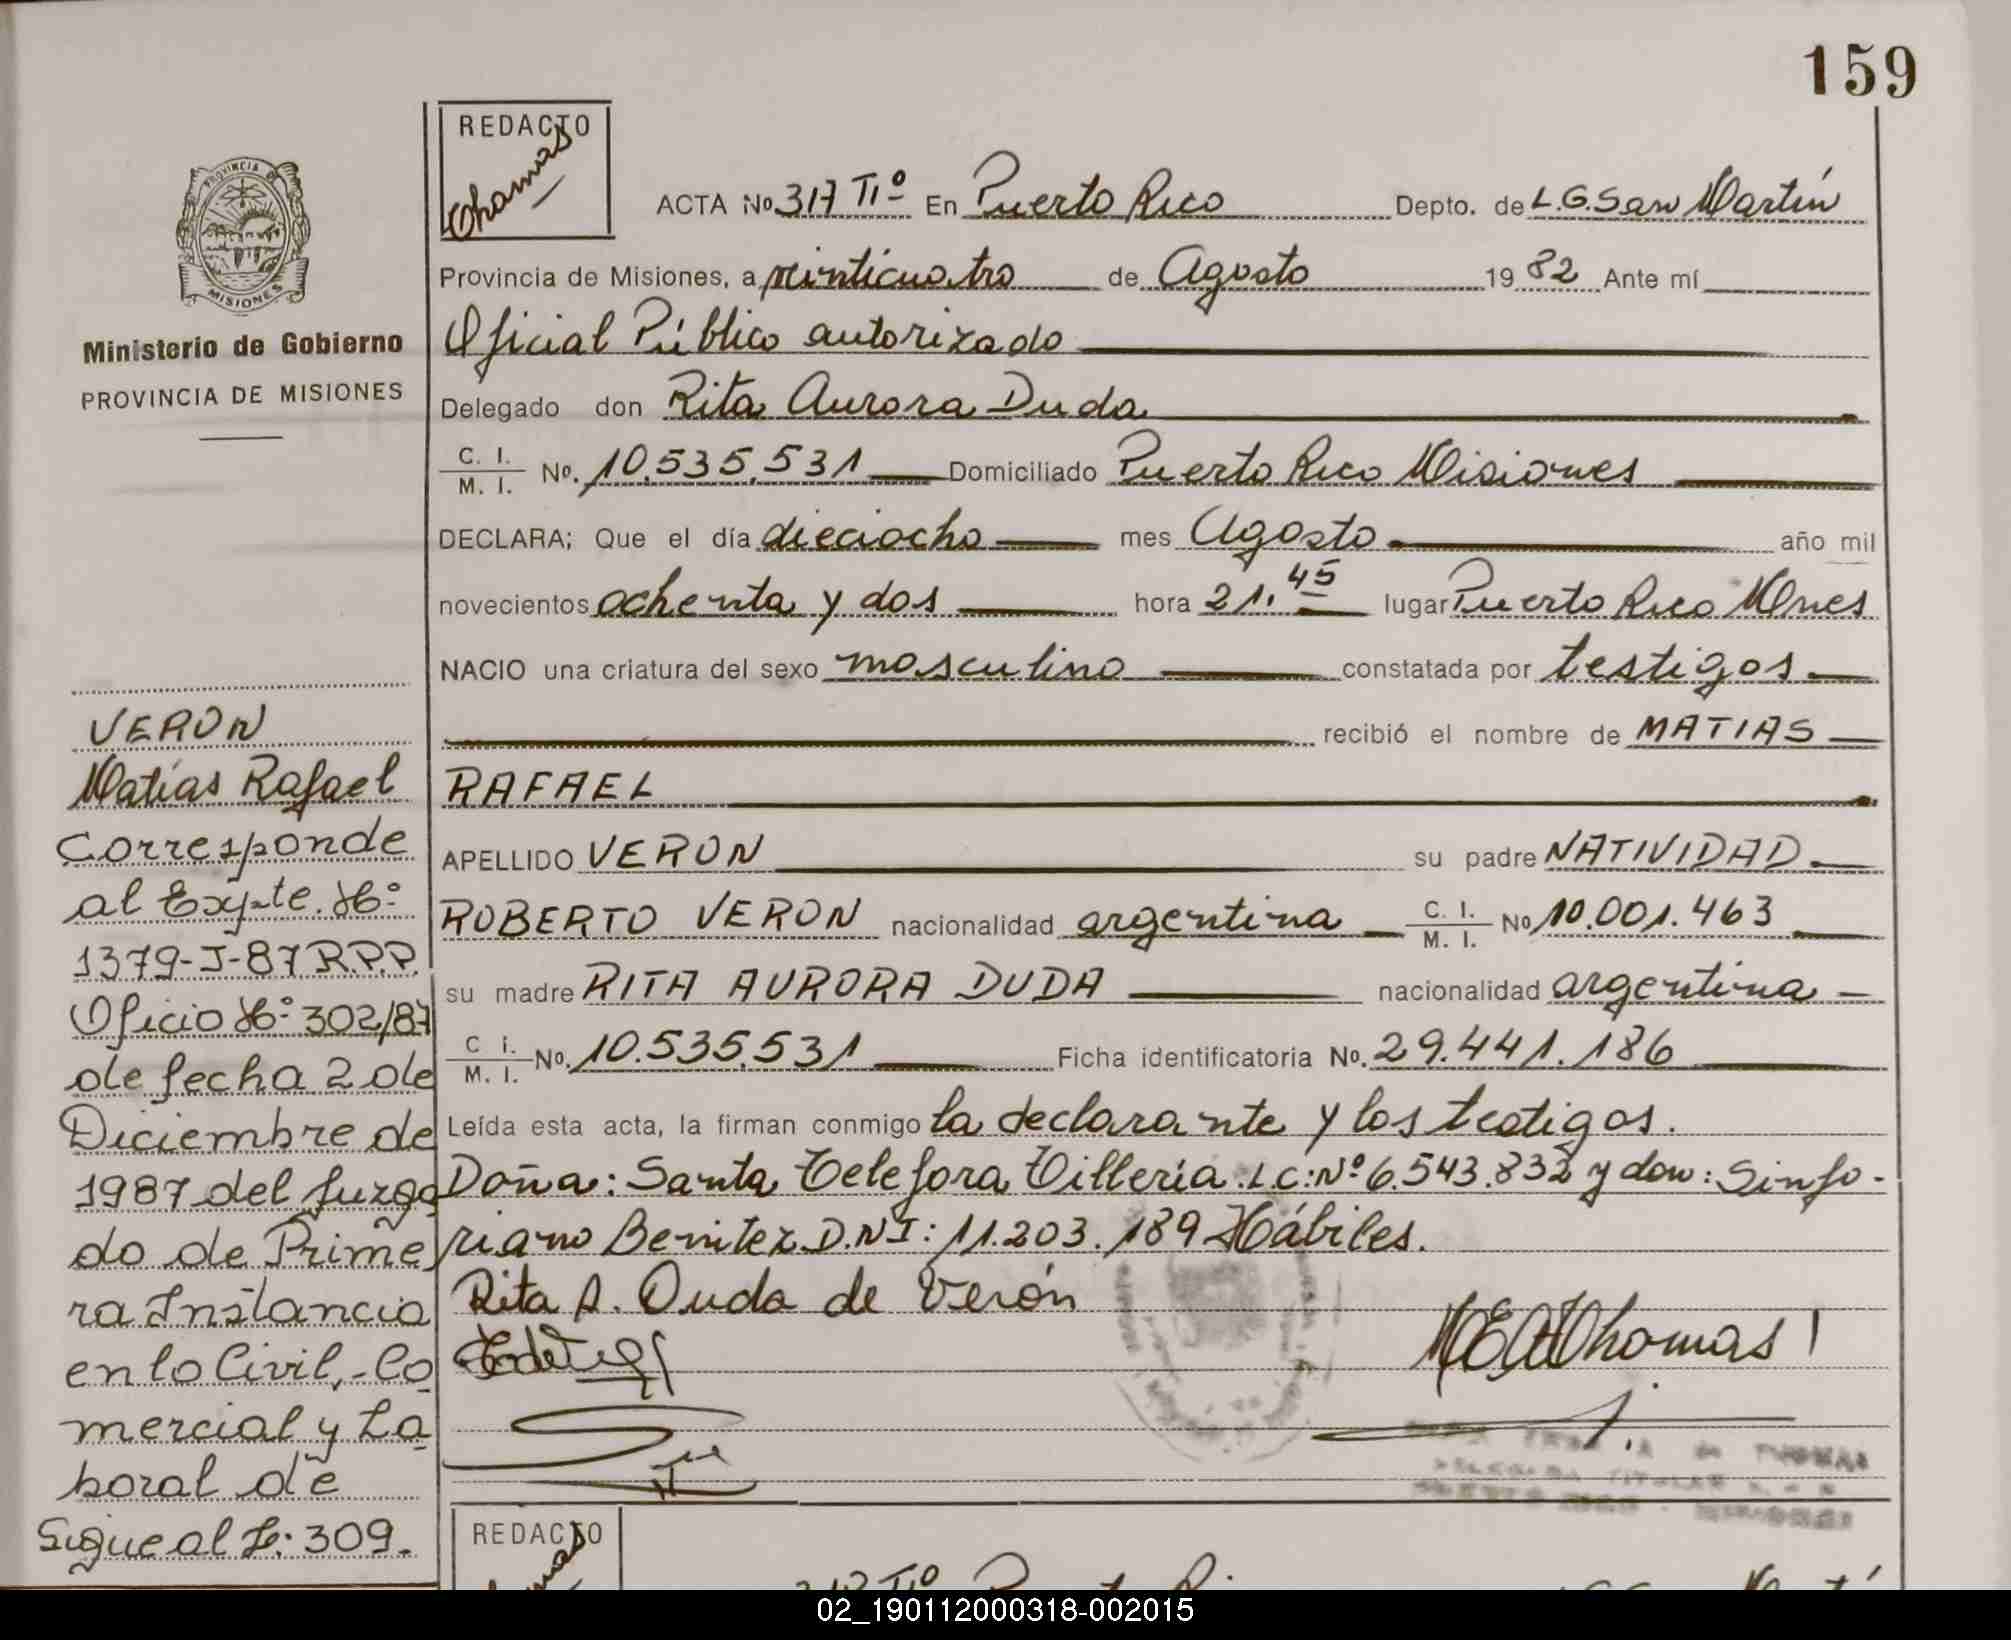 159
REDACTO
Thomas
PROVINCIA DE
MISIONES
Ministerio de Gobierno
PROVINCIA DE MISIONES
ACTA No 317 Tiº En Puerto Rico Depto. de L.G.San Martín
Provincia de Misiones, a veinticuatro de Agosto 1982 Ante mí
Oficial Público autorizado
Delegado don Rita Aurora Duda
C. I.
M. I. Nº. 10.535.531 Domiciliado Puerto Rico Misiones
DECLARA; Que el día dieciocho mes Agosto año mil
novecientos ochenta y dos hora 21.45 lugar Puerto Rico Mnes
NACIO una criatura del sexo masculino constatada por testigos
recibió el nombre de MATIAS
RAFAEL
APELLIDO VERON su padre NATIVIDAD
ROBERTO VERON nacionalidad argentina C. I. M. I. No 10.001.463
su madre RITA AURORA DUDA nacionalidad argentina
C i. M. I. No. 10.535.531 Ficha identificatoria No. 29.441.186
Leída esta acta, la firman conmigo la declarante y los testigos.
Doña: Santa Telefora Villeria. L.C:Nº 6.543.832 y don: Sinfo-
riano Benitez D.N I: 11.203.189 Hábiles.
Rita A. Duda de Verón
Thomas
VERON
Matías Rafael
Corresponde
al Expte. Nº
1379-J-87 R.P.P.
Oficio Nº 302/87
de fecha 2 de
Diciembre de
1987 del Juzga
do de Prime
ra Instancia
en lo Civil, Co
mercial y La
boral de
Sigue al F: 309.
REDACTO
02_190112000318-002015